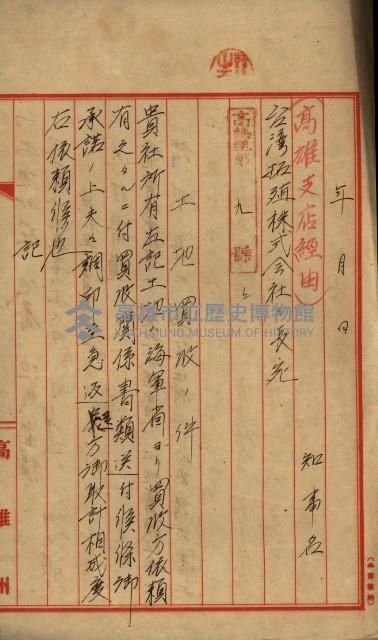 年　月　日
知事名
高雄支店經由
台湾拓殖株式会社長宛
九號
土地買收ノ件
貴社所有左記土地海軍省ヨリ買收方依頼
有之タルニ付買收関係書類送付候條御
承諾ノ上夫々調印至急返戻方御取計相成度
右依頼候也
記
高雄州
高雄市立歷史博物館
KAOHSIUNG MUSEUM OF HISTORY